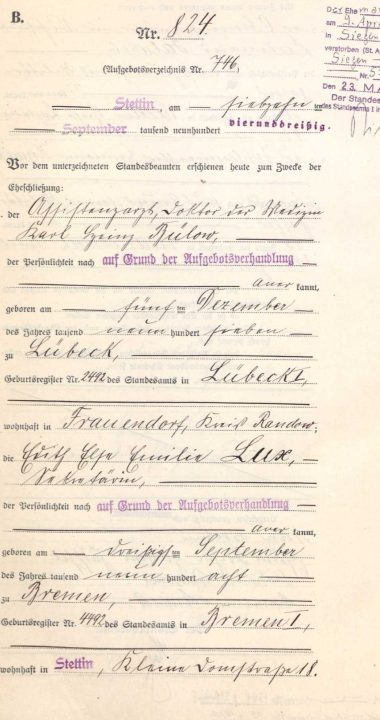 B.
Nr. 824.
(Aufgebotsverzeichnis Nr. 746,
Stettin, am siebzehnten
September tausend neunhundert vierunddreißig.
Der Ehemann
am 9. April
in Siegen
verstorben (St. A.
Siegen
Nr. 5
Den 23. MA
Der Standes
des Standesamts I in
Vor dem unterzeichneten Standesbeamten erschienen heute zum Zwecke der
Eheschließung:
der Assistenzarzt, Doktor der Medizin
Karl Heinz Bülow,
der Persönlichkeit nach auf Grund der Aufgebotsverhandlung
aner kannt,
geboren am fünften Dezember
des Jahres tausend neun hundert sieben
zu Lübeck,
Geburtsregister Nr. 2492 des Standesamts in Lübeck I,
wohnhaft in Frauendorf, Kreis Randow;
die Edith Else Emilie Lux,
Sekretärin,
der Persönlichkeit nach auf Grund der Aufgebotsverhandlung
aner kannt,
geboren am dreißigsten September
des Jahres tausend neun hundert acht
zu Bremen,
Geburtsregister Nr. 4492 des Standesamts in Bremen I,
wohnhaft in Stettin, Kleine Domstraße 18.